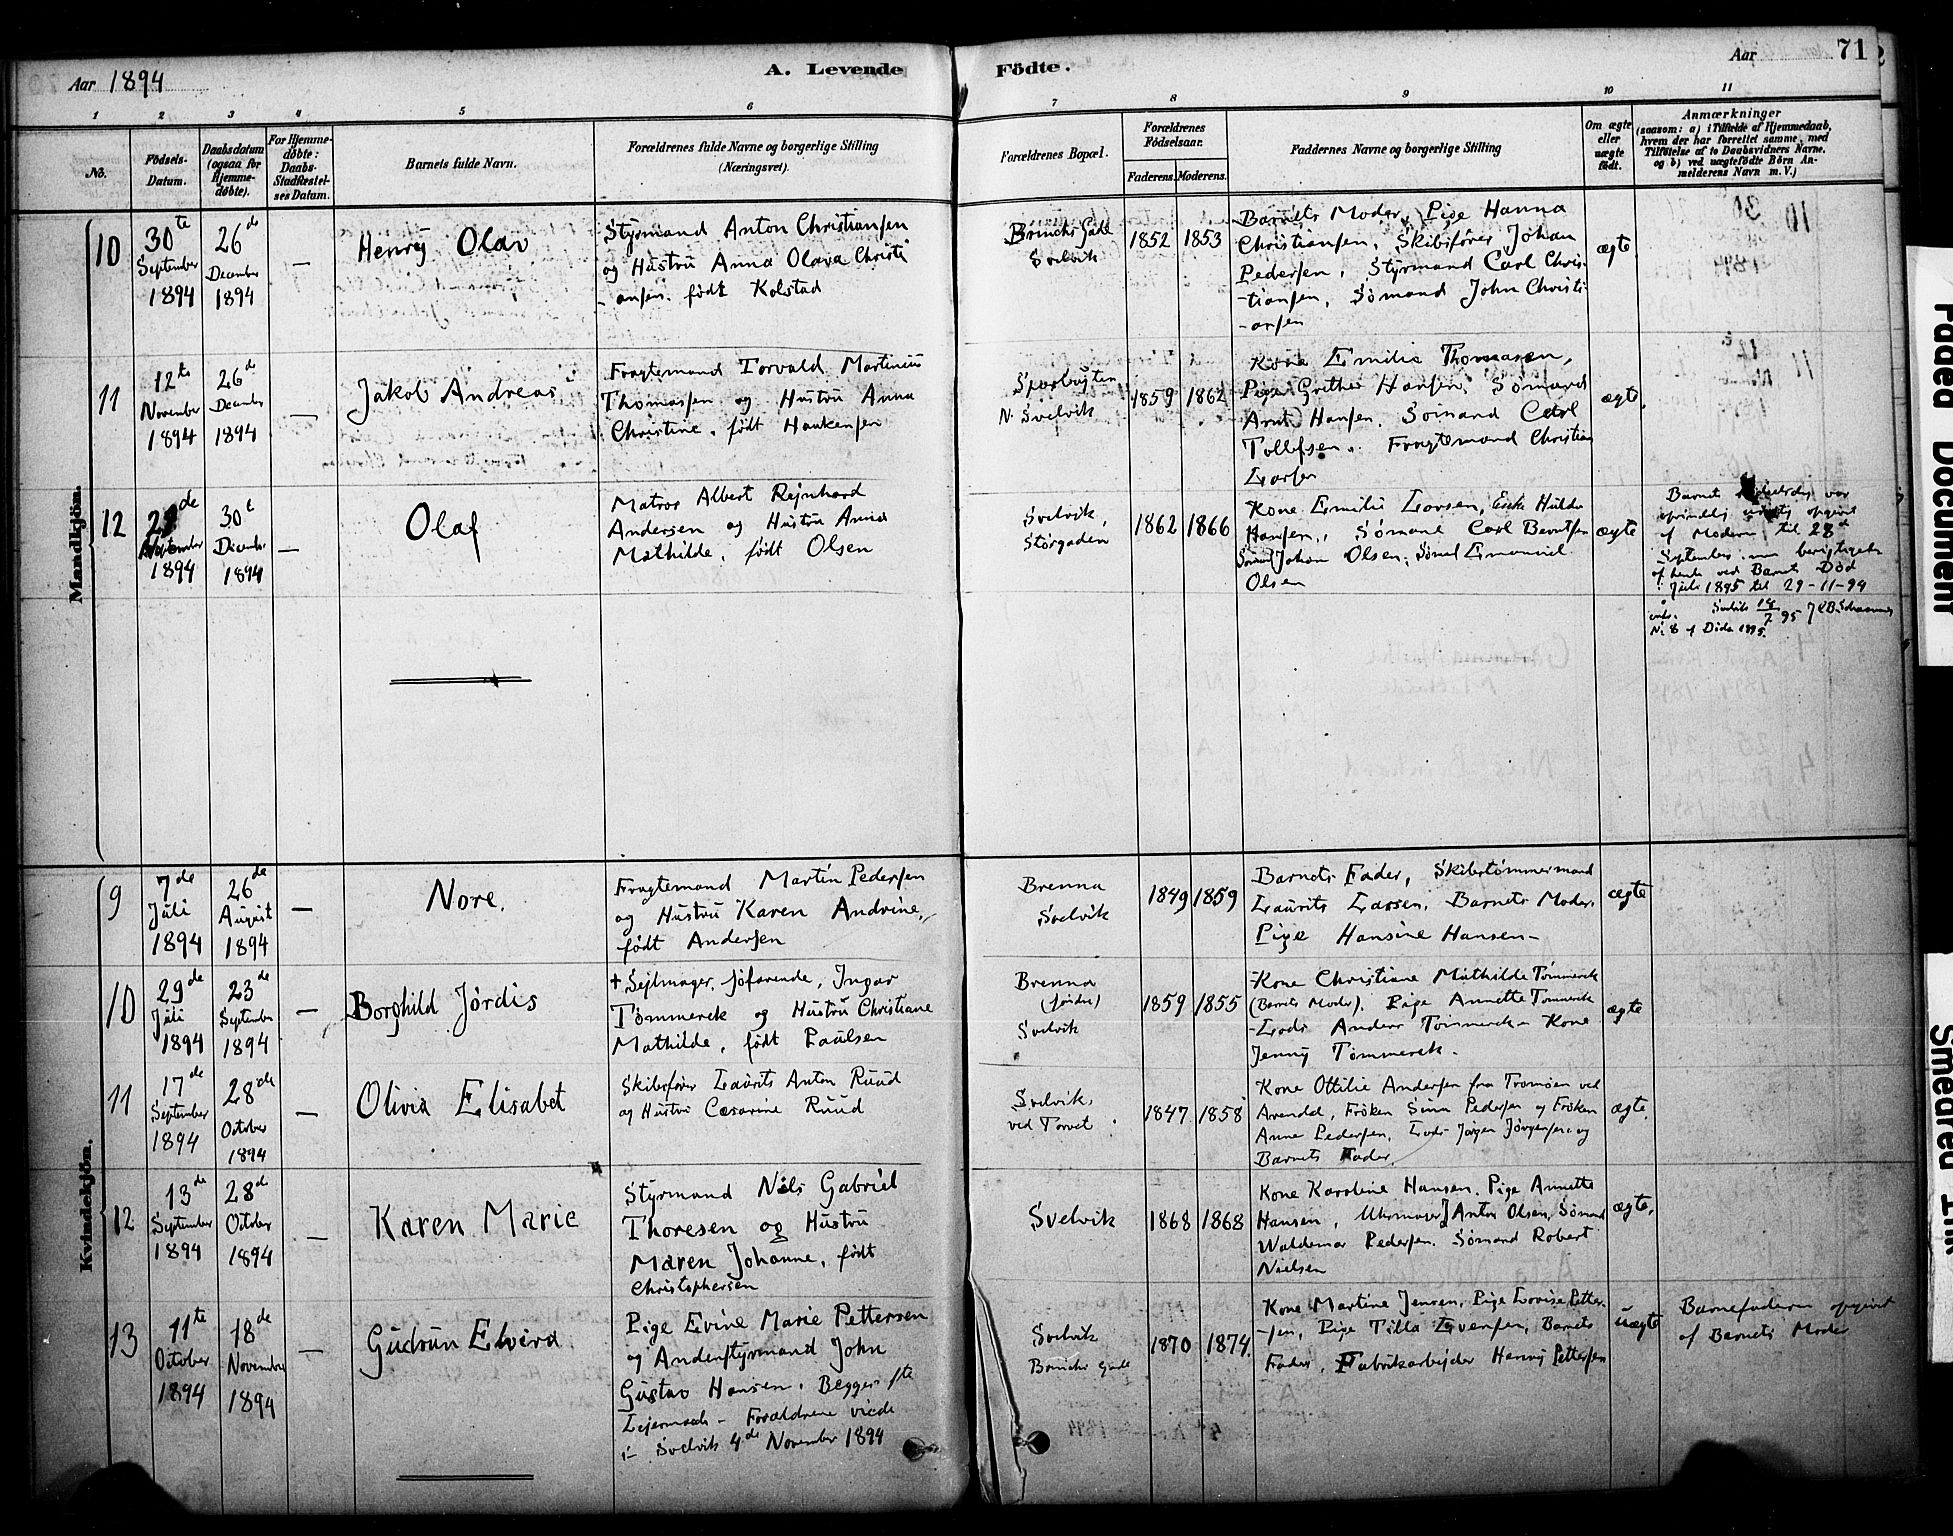 Aar 1894
A. Levende Födte.
Aar
71
1
2
3
4
5
6
7
8
9
10
11
No.
Födsels-
Datum.
Daabsdatum
(ogsaa for
Hjemme-
døbte).
For Hjemme-
døbte:
Daabs-
Stadfæstel-
ses Datum.
Barnets fulde Navn.
Forældrenes fulde Navne og borgerlige Stilling
(Næringsvei).
Forældrenes Bopæl.
Forældrenes
Födselsaar.
Faderens.
Moderens.
Faddernes Navne og borgerlige Stilling
Om ægte
eller
uægte
født.
Anmærkninger
(saasom: a) i Tilfælde af Hjemmedaab,
hvem der har forrettet samme, med
Tilføielse af to Daabsvidners Navne,
og b) ved uægtefødte Börn An-
melderens Navn m. V.)
Mandkjön.
10
30te
September
1894
26de
December
1894
—
Henry Olav
Styrmand Anton Christiansen
og Hustru Anna Olava Christi
-ansen. født Kolstad
Svelvik
1852
1853
Barnets Moder, Pige Hanna
Christiansen, Skibsfører Johan
Pedersen, Styrmand Carl Chris-
-tiansen, Sömand John Christi-
-ansen
ægte
11
12te
November
1894
26de
December
1894
—
Jakob Andreas
Fragtemand Torvald Martinius
Thomassen og Hustru Anna
Christine, født Haakensen
N. Svelvik
1859
1862
Kone Emilie Thomasen,
Pige Grethe Hansen, Sömand
Arnt Hansen, Sömand Carl
Tollefsen, Fragtemand Christian
Larsen
ægte
12
1894
30t
December
1894
—
Olaf
Matros Albert Rejnhard
Andersen og Hustru Anna
Mathilde, født Olsen
Svelvik,
Storgaden
1862
1866
Kone Emilie Larsen, Enke Hulda
Hansen, Sømand Carl Berntsen
Sømand Johan Olsen, Sømd Emanuel
Olsen
ægte
Barnets var
opgivet
af Moderen til 28de
September men berigtiget
af hende ved Barnets Död
i Juli 1895 til 29-11-94
Svelvik 95
No 8 af Døde 1895.
Kvindekjön.
9
7de
Juli
1894
26de
August
1894
—
Nore.
Fragtemand Martin Pedersen
og Hustru Karen Andrine,
født Andersen
Brenna
Svelvik
1849
1859
Barnets Fader, Skibstømmermand
Laurits Larsen, Barnets Moder,
Pige Hansine Hansen-
ægte
10
29de
Juli
1894
23de
September
1894
—
Borghild Jördis
+ Sejlmager, søfarende, Ingar
Tømmerek og Hustru Christiane
Mathilde, født Paulsen
Brenna
Svelvik
1859
1855
Kone Christiane Mathilde Tømmerek
(Barnets Moder). Pige Annette Tømmerek
Lods Anders Tømmerek - Kone
Jenny Tømmerek.
ægte
11
17de
September
1894
28de
October
1894
—
Olivia Elisabet
Skibsfører Laurits Anton Ruud
og Hustru Cæsarine Ruud
Svelvik,
ved Torvet.
1847
1858
Kone Ottilie Andersen fra Tromøen ved
Arendal, Frøken Sina Pedersen og Frøken
Anne Pedersen, Lods Jørgen Jörgensen og
Barnets Fader.
ægte.
12
13de
September
1894
28d
October
1894
—
Karen Marie
Styrmand Nils Gabriel
Thoresen og Hustru
Maren Johanne, født
Christophersen
Svelvik
1868
1868
Kone Karoline Hansen. Pige Annette
Hansen, Uhrmager Anton Olsen, Sømand
Waldemar Pedersen. Sømand Robert
Nielsen
ægte,
13
11te
October
1894
18de
November
1894
—
Gudrun Elvira
Pige Evine Marie Pettersen
og Anderstyrmand John
Gustav Hansen. Begges 1ste
Lejermaal - Forældrene viede
i Svelvik 4de November 1894
Svelvik
1870
1874
Kone Martine Jensen, Pige Lovise Petter-
-sen, Pige Tilla Evensen, Barnets
Fader, Fabrikarbejder Henrij Pettersen
uægte
Barnefaderen opgivet
af Barnets Moder
Faded Document
Smeared Ink